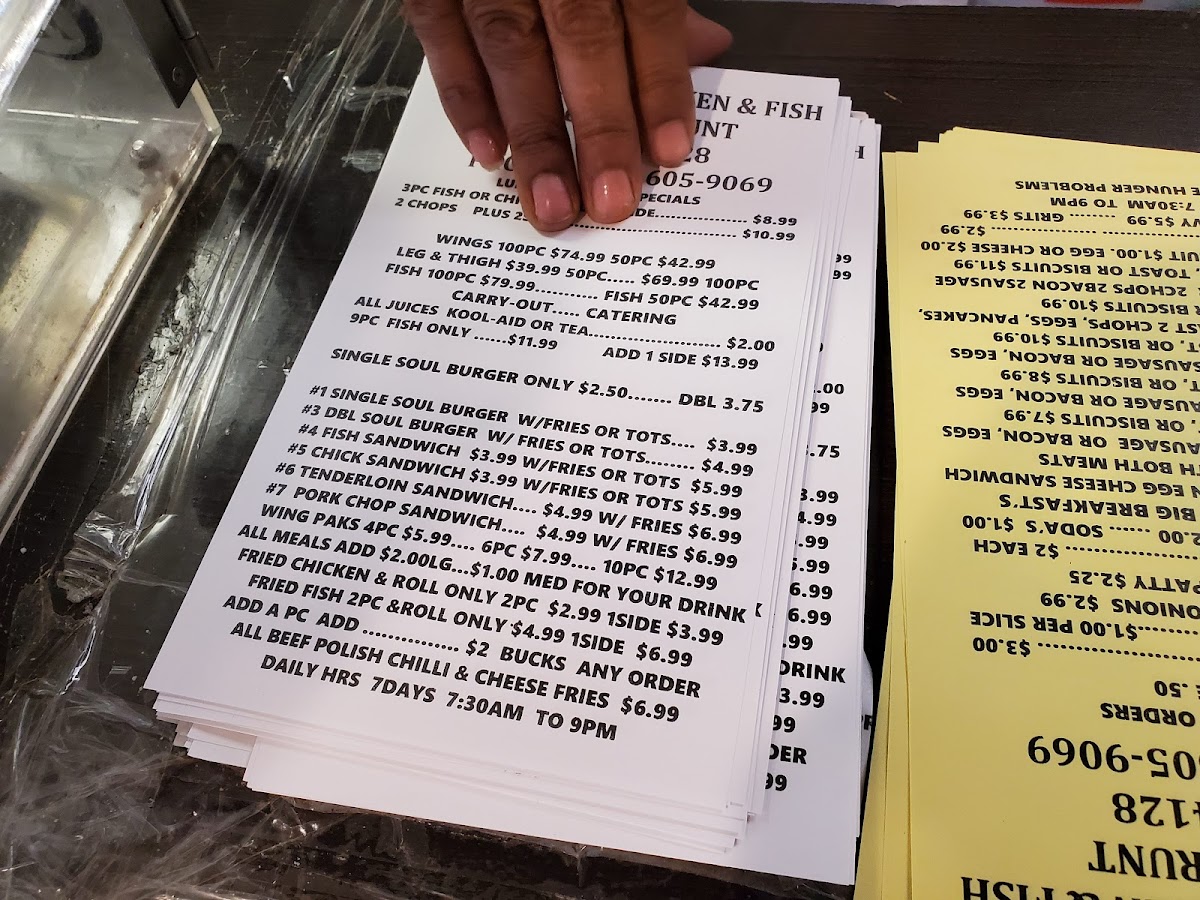 EN & FISH
UNT
28
605-9069
LU PECIALS
3PC FISH OR CHI DE..................... $8.99
2 CHOPS PLUS 2 ........................ $10.99
WINGS 100PC $74.99 50PC $42.99
LEG & THIGH $39.99 50PC..... $69.99 100PC
FISH 100PC $79.99........... FISH 50PC $42.99
CARRY-OUT..... CATERING
ALL JUICES KOOL-AID OR TEA....................... $2.00
9PC FISH ONLY ......$11.99 ADD 1 SIDE $13.99
SINGLE SOUL BURGER ONLY $2.50....... DBL 3.75
#1 SINGLE SOUL BURGER W/FRIES OR TOTS.... $3.99
#3 DBL SOUL BURGER W/ FRIES OR TOTS........ $4.99
#4 FISH SANDWICH $3.99 W/FRIES OR TOTS $5.99
#5 CHICK SANDWICH $3.99 W/FRIES OR TOTS $5.99
#6 TENDERLOIN SANDWICH.... $4.99 W/ FRIES $6.99
#7 PORK CHOP SANDWICH.... $4.99 W/ FRIES $6.99
WING PAKS 4PC $5.99.... 6PC $7.99.... 10PC $12.99
ALL MEALS ADD $2.00LG...$1.00 MED FOR YOUR DRINK
FRIED CHICKEN & ROLL ONLY 2PC $2.99 1SIDE $3.99
FRIED FISH 2PC &ROLL ONLY $4.99 1SIDE $6.99
ADD A PC ADD ............. $2 BUCKS ANY ORDER
ALL BEEF POLISH CHILLI & CHEESE FRIES $6.99
DAILY HRS 7DAYS 7:30AM TO 9PM
H
99
99
.00
99
.75
3.99
4.99
.99
5.99
6.99
6.99
.99
DRINK
3.99
99
DER
99
& FISH
RUNT
#128
605-9069
ORDERS
.50
$3.00
$1.00 PER SLICE
ONIONS $2.99
PATTY $2.25
$2 EACH
2.00 ...... SODA'S $1.00
BIG BREAKFAST'S
N EGG CHEESE SANDWICH
TH BOTH MEATS
SAUSAGE OR BACON, EGGS
, OR BISCUITS $7.99
SAUSAGE OR BACON, EGGS
T, OR BISCUITS $8.99
SAUSAGE OR BACON, EGGS
ST, OR BISCUITS $10.99
ST 2 CHOPS, EGGS, PANCAKES,
OR BISCUITS $10.99
2CHOPS 2BACON 2SAUSAGE
, TOAST OR BISCUITS $11.99
UIT $1.00. EGG OR CHEESE $2.00
$2.99
VY $5.99 ........ GRITS $3.99
7:30AM TO 9PM
E HUNGER PROBLEMS